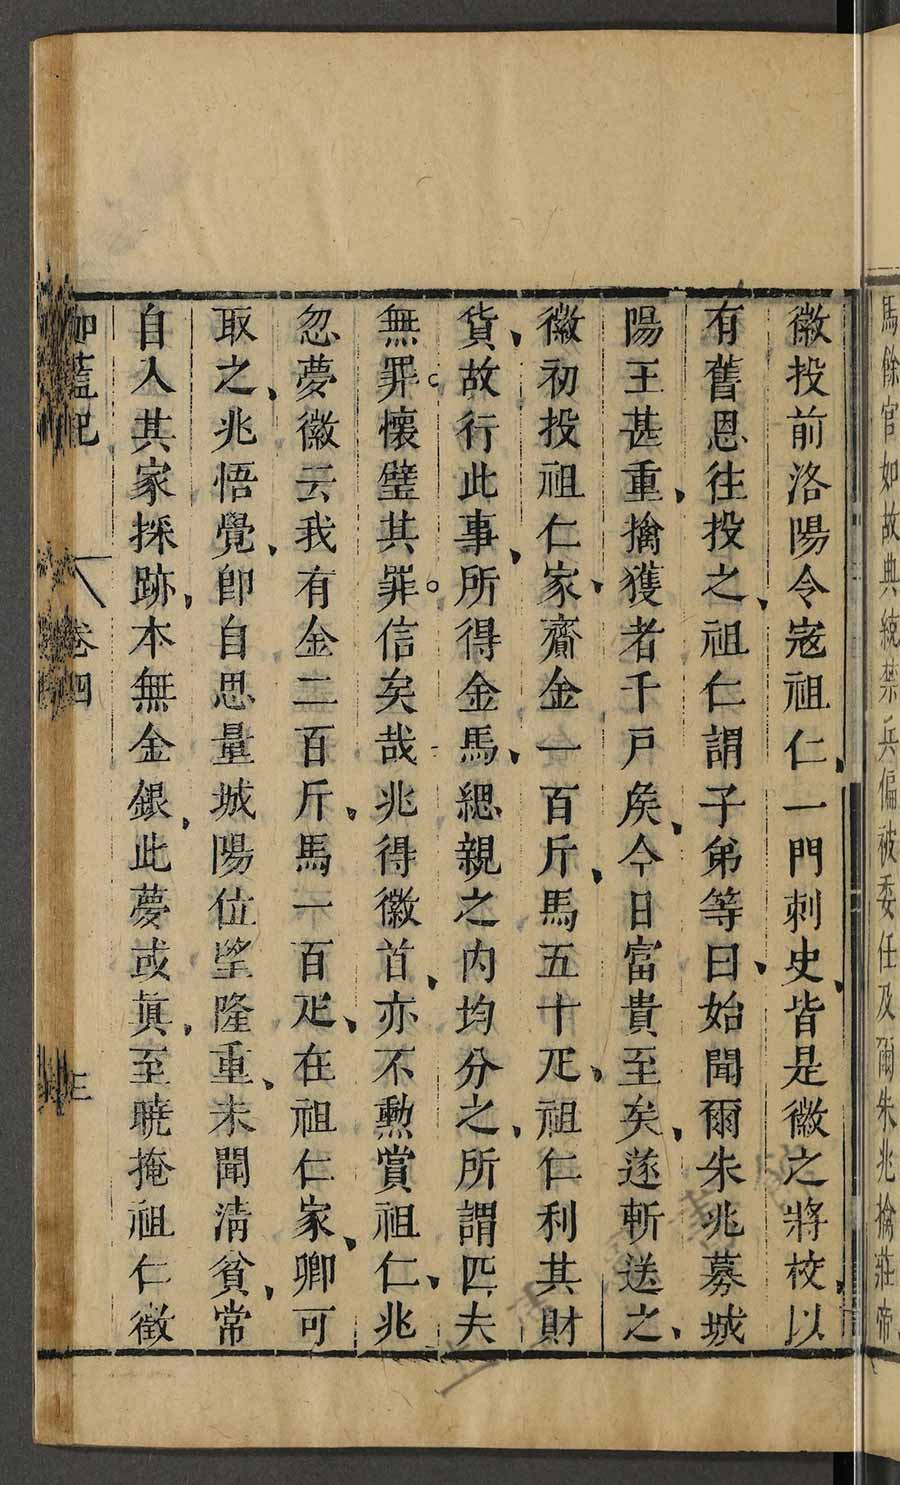 馬餘官如故典統禁兵偏被委任及爾朱兆擒莊帝
徽投前洛陽令寇祖仁一門刺史皆是徽之將校以
有舊恩往投之祖仁謂子弟等曰始聞爾朱兆募城
陽王甚重擒獲者千戸矦今日富貴至矣遂斬送之
徽初投祖仁家齎金一百斤馬五十疋祖仁利其財
貨故行此事所得金馬緦親之内均分之所謂匹夫
無罪懷璧其罪信矣哉兆得徽首亦不勲賞祖仁兆
忽夢徽云我有金二百斤馬一百疋在祖仁家卿可
取之兆悟覺卽自思量城陽位望隆重未聞清貧常
自入其家採跡本無金銀此夢或眞至曉掩祖仁徵
伽藍記 卷四 三